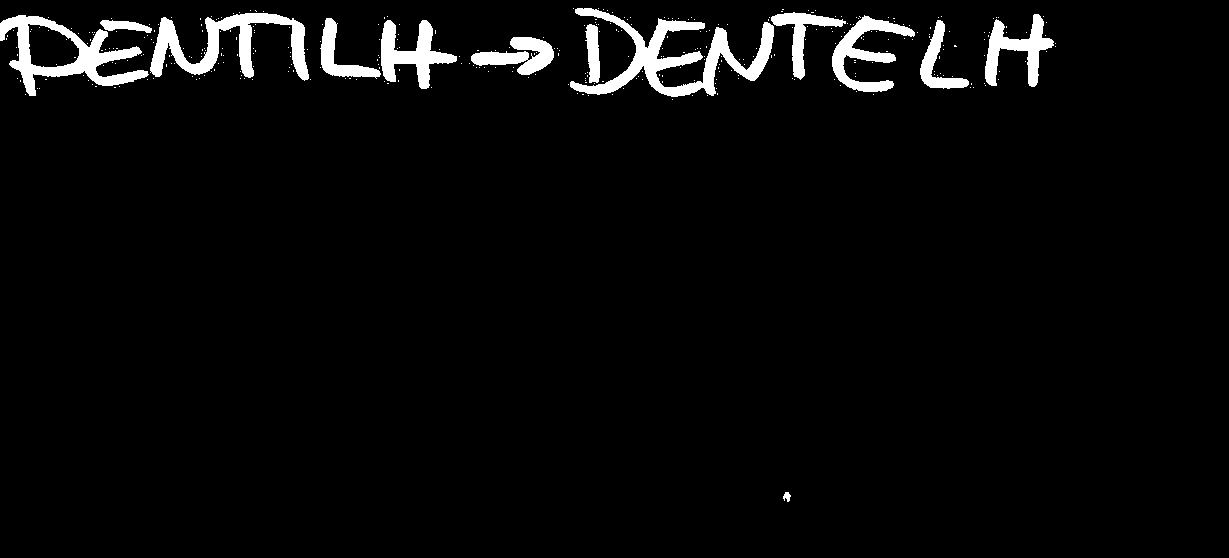 DENTILH → DENTELH